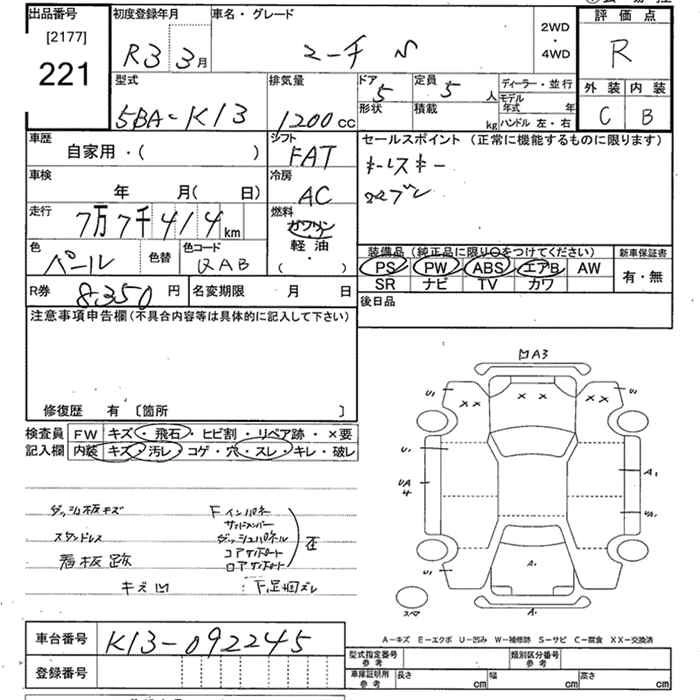 出品番号
[2177]
221
初度登録年月
R3 3月
車名・グレード
マーチ
2WD
・
4WD
評価点
R
外装 内装
C B
型式
5BA-K13
排気量
1200cc
ドア
5
定員
5人
形状
積載
kg
ディーラー・並行
モデル
年式 年
ハンドル 左・右
車歴
自家用・( )
シフト
FAT
セールスポイント (正常に機能するものに限ります)
キーレスキー
車検
年 月( 日)
冷房
AC
走行
7万7千414km
燃料
ガソリン
軽油
・
( )
色
パール
色替
色コード
QAB
装備品 (純正品に限り○をつけてください)
PS PW ABS エアB AW
SR ナビ TV カワ
新車保証書
有・無
R券 8,350円
名変期限 月 日
後日品
注意事項申告欄(不具合内容等は具体的に記入して下さい)
修復歴 有 〔箇所 〕
検査員
記入欄
FW キズ・飛石・ヒビ割・リペア跡・×要
内装 キズ・汚レ・コゲ・穴・スレ・キレ・破レ
ダッシュ板キズ
スタンドレス
看板跡
キズ凹
Fインパネ
サイドメンバー
ダッシュパネル
コアサポート
ロアサポート
歪
F足回ズレ
凹A3
U1 U1
×× ×× ××
U1
UA
4
A1
U1
A1
スペア
A1
A-キズ E-エクボ U-凹み W-補修跡 S-サビ C-腐食 XX-交換済
車台番号
K13-092245
登録番号
型式指定番号
参考
類別区分番号
参考
車庫証明用
参考
長さ cm
幅 cm
高さ cm